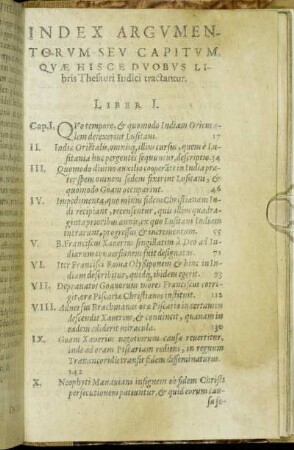 INDEX ARGVMEN-
TORVM SEV CAPITVM,
QVÆ HISCE DVOBVS LI-
bris Thesauri Indici tractantur.
LIBER I.
Cap. I. QVo tempore, & quomodo Indiam Orienta-
lem detexerint Lusitani. 17
II. India Oriētalis, omnisq́, illius cursus, quem è Lu-
sitania huc pergentes sequuntur, descriptio. 34
III. Quomodo diuino auxilio cooperāte in India præ-
ter spem omnem sedem fixerint Lusitani, &
quomodo Goam occuparint. 46
IV. Impedimenta, quo minus fidem Christianam In-
di recipiant, recensentur, quòd illum quadra-
ginta pœnè tribus annis, ex quo Lusitani Indiam
intrarunt, progressus, & incrementum. 55
V. B. Franciscum Xauerium singillatim à Deo ad In-
diarum conuersionem fuisse designatum. 71
VI. Iter Francisci Roma Olyssiponem, & hinc in In-
diam describitur, quidq́; ibidem egerit. 93
VII. Deprauatos Goanorum mores Franciscus corri-
git, oræ Piscariæ Christianos instituit. 112
VIII. Aduersus Brachmanas oræ Piscariæ in certamen
descendit Xauerius, & conuincit, quanam in
eadem ediderit miracula. 130
IX. Goam Xauerius negotiorum causa reuertitur,
inde ad oram Piscariam rediens, in regnum
Trauancoridis transit fidem disseminaturus.
142
X. Neophyti Manauiani insignem ob fidem Christi
persecutionem patiuntur, & quid eorum cau-
sa je-